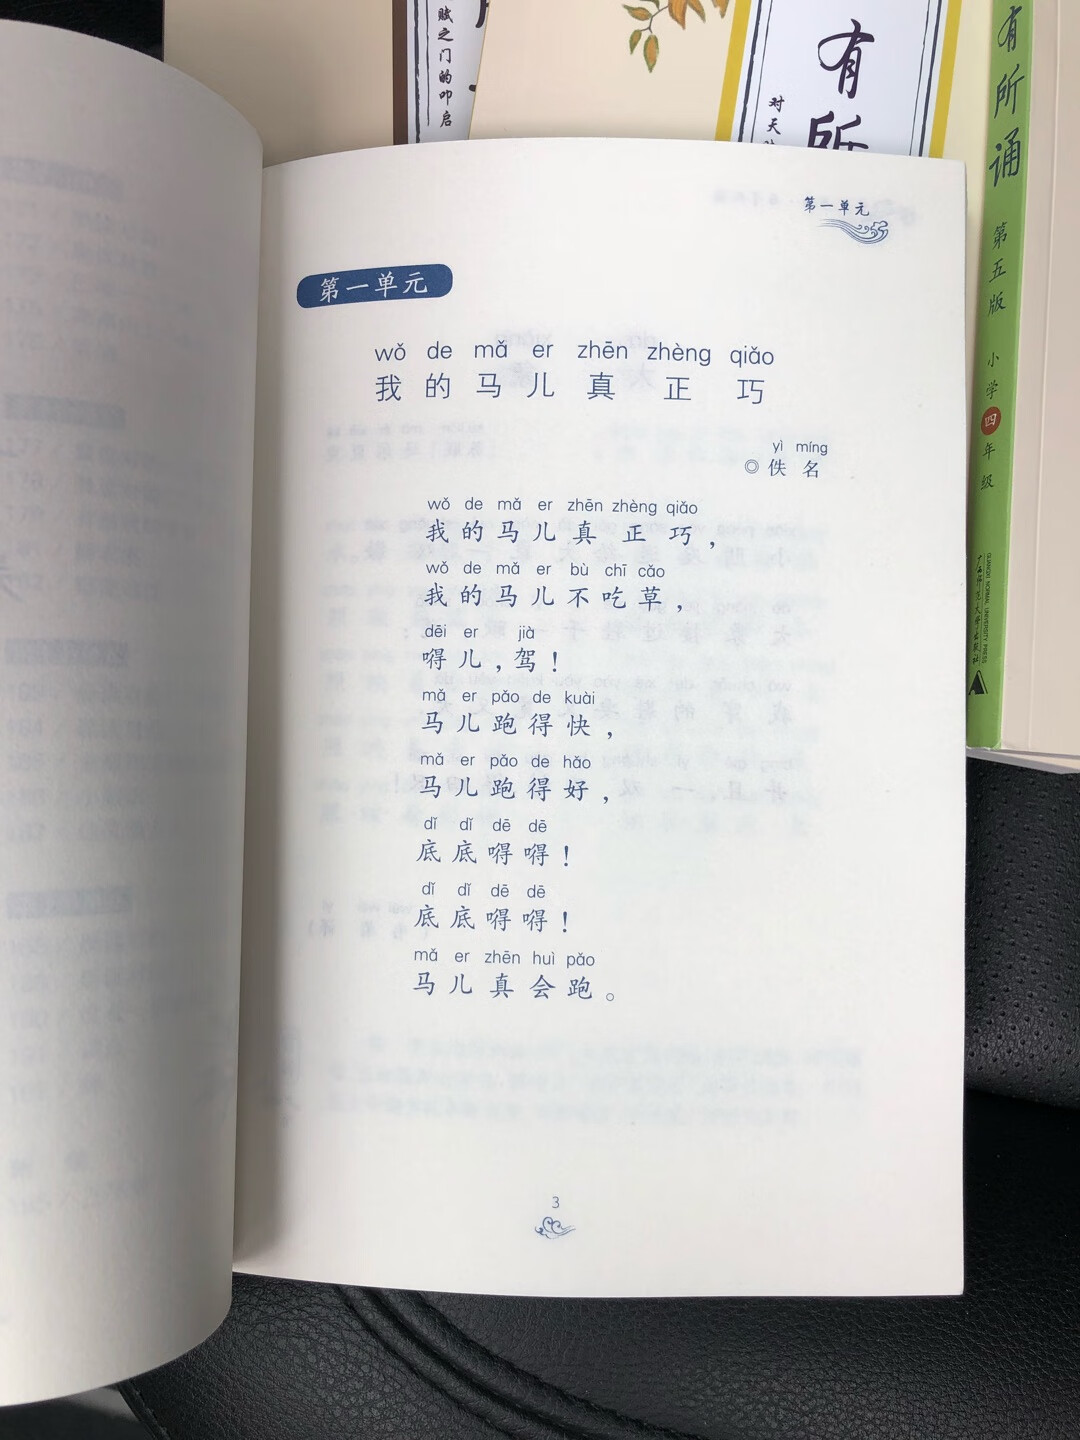 赋之门的叩启
有所
对天
有所诵
第五版
小学四年级
广西师范大学出版社
GUANGXI NORMAL UNIVERSITY PRESS
第一单元
第一单元
wǒ de mǎ er zhēn zhèng qiǎo
我的马儿真正巧
yì míng
◎佚名
wǒ de mǎ er zhēn zhèng qiǎo
我的马儿真正巧，
wǒ de mǎ er bù chī cǎo
我的马儿不吃草，
dēi er jià
嘚儿，驾！
mǎ er pǎo de kuài
马儿跑得快，
mǎ er pǎo de hǎo
马儿跑得好，
dǐ dǐ dē dē
底底嘚嘚！
dǐ dǐ dē dē
底底嘚嘚！
mǎ er zhēn huì pǎo
马儿真会跑。
3